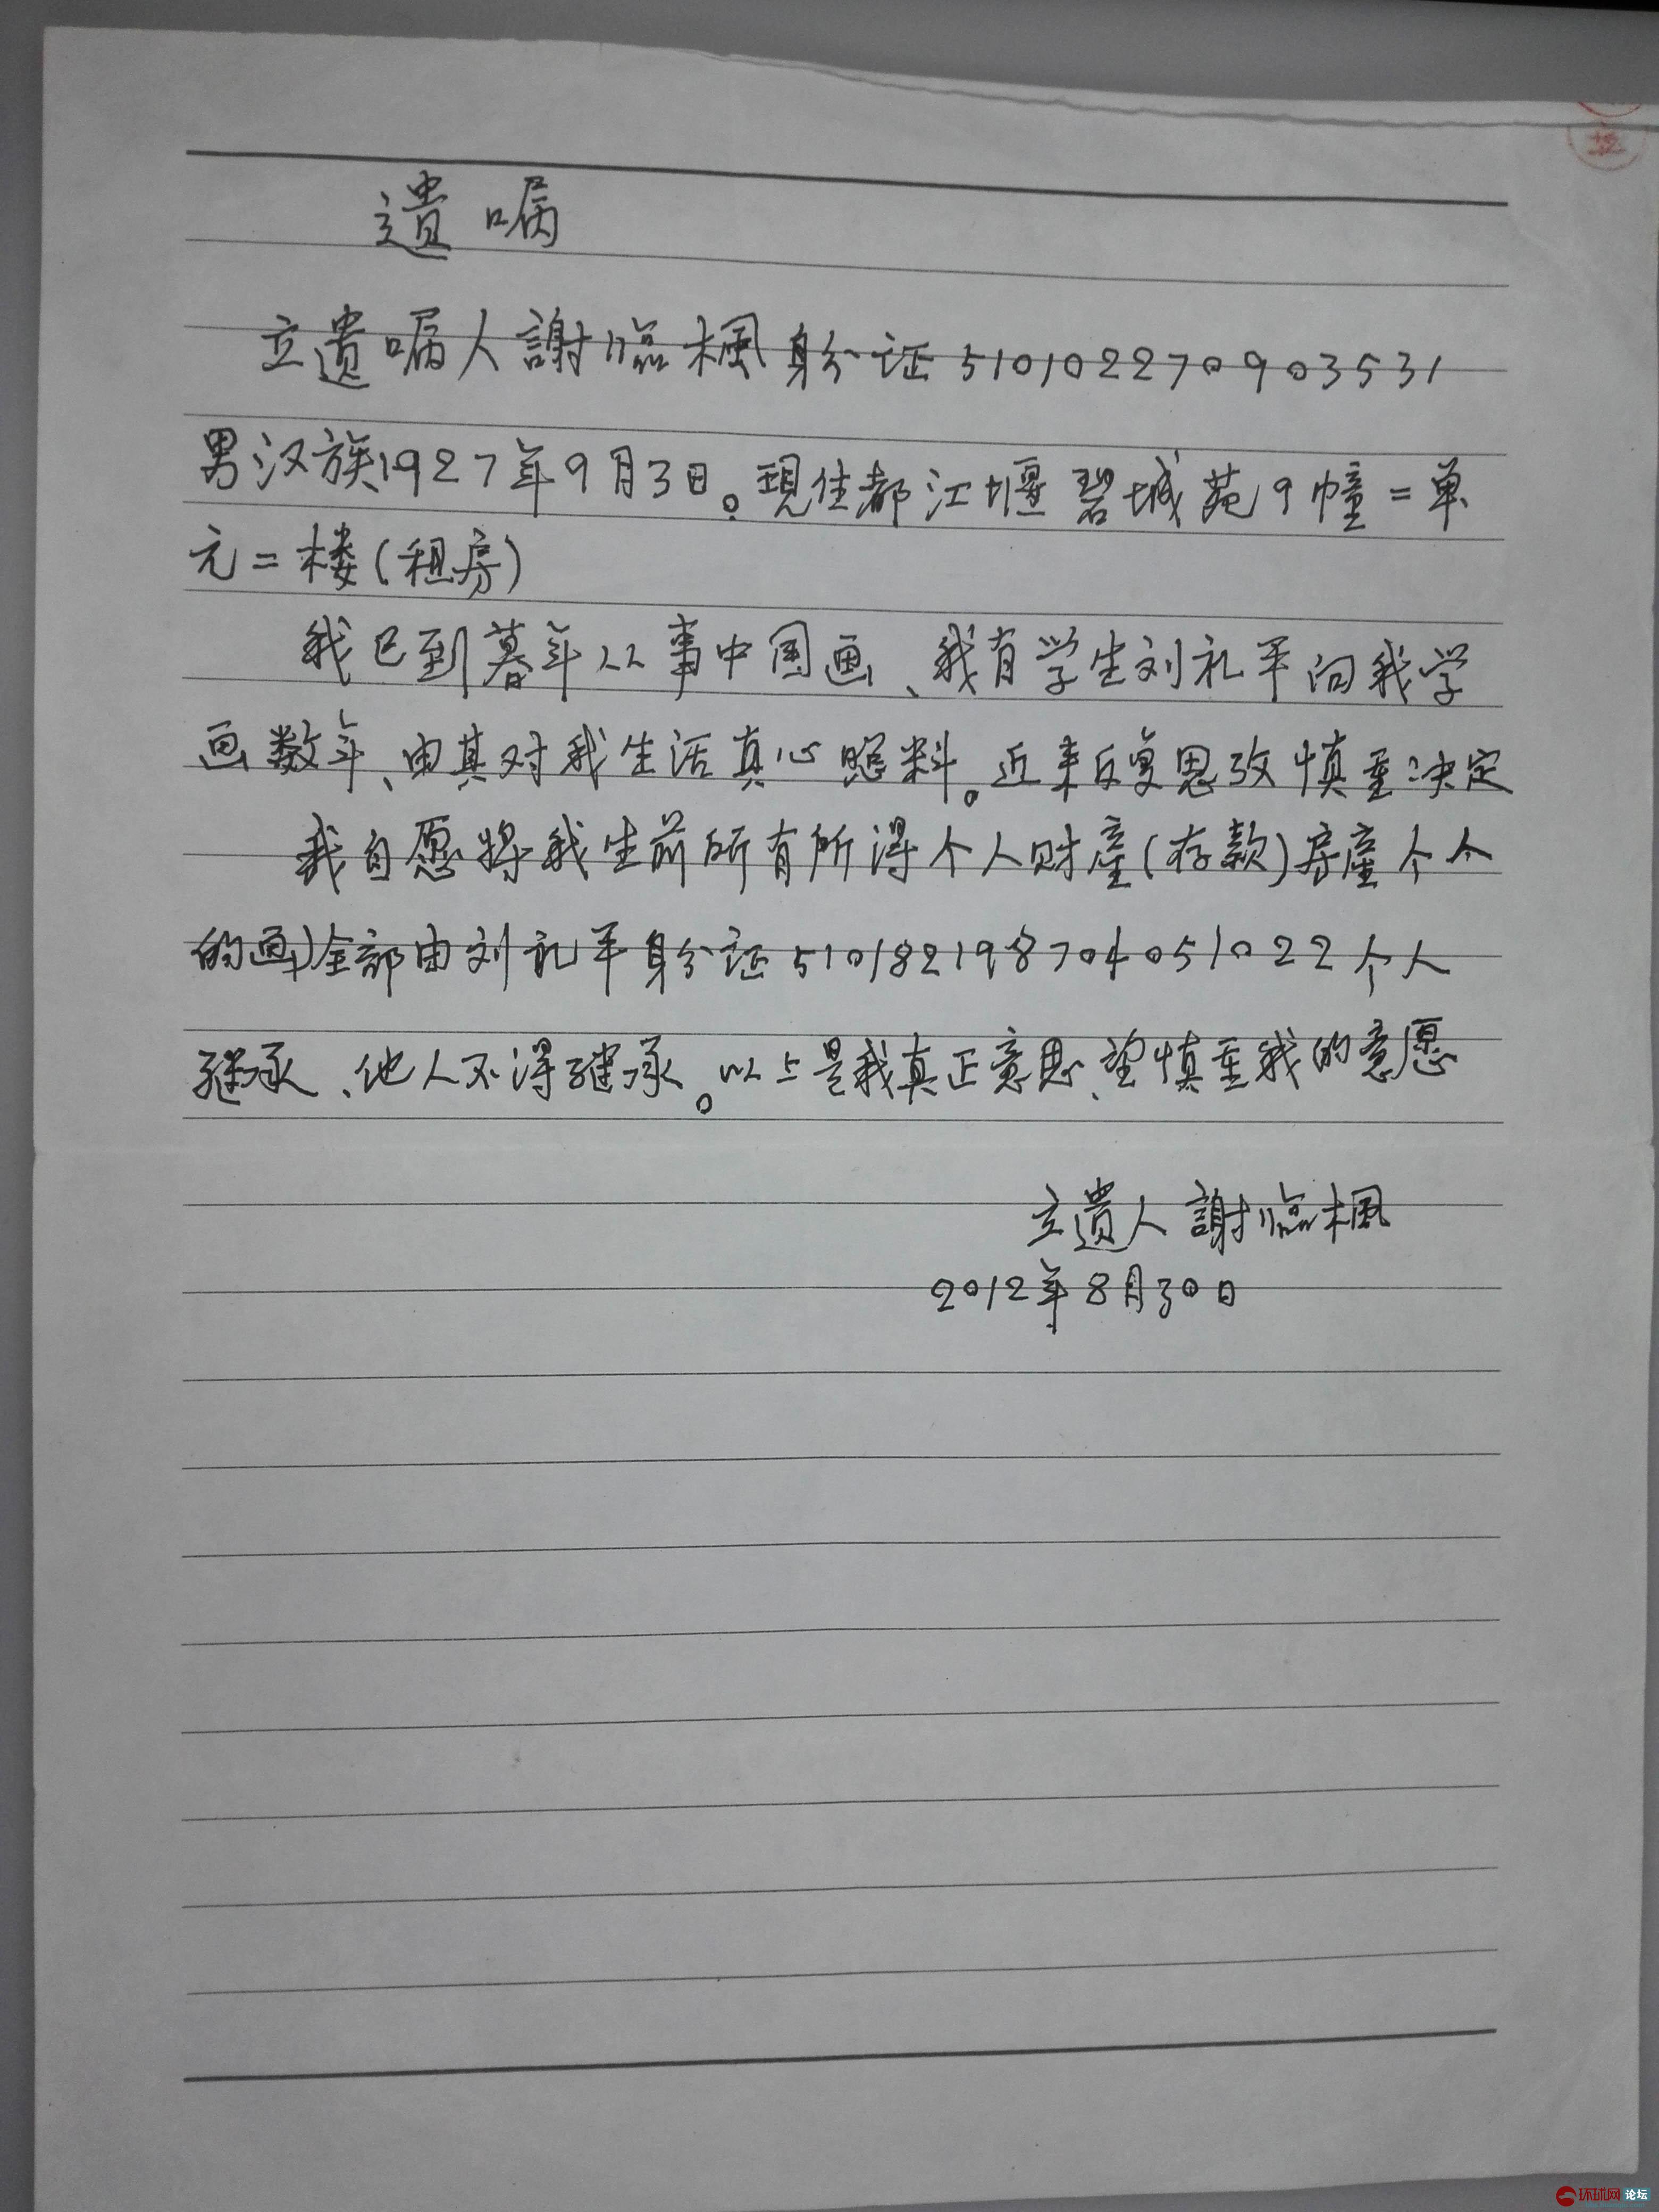 遺嘱
立遗嘱人謝臨楓身分证510102270903531
男汉族1927年9月3日。現住都江堰碧城苑9幢=单
元=楼(租房)
我已到暮年从事中国画、我有学生刘礼平向我学
画数年、由其对我生活真心照料。近来反复思攷慎重决定
我自愿将我生前所有所得个人财産(存款)房産个人
的画)全部由刘礼平身分证510182198704051022个人
继承、他人不得继承。以上是我真正意思、望慎重我的意愿
立遗人謝臨楓
2012年8月30日
环球网 论坛